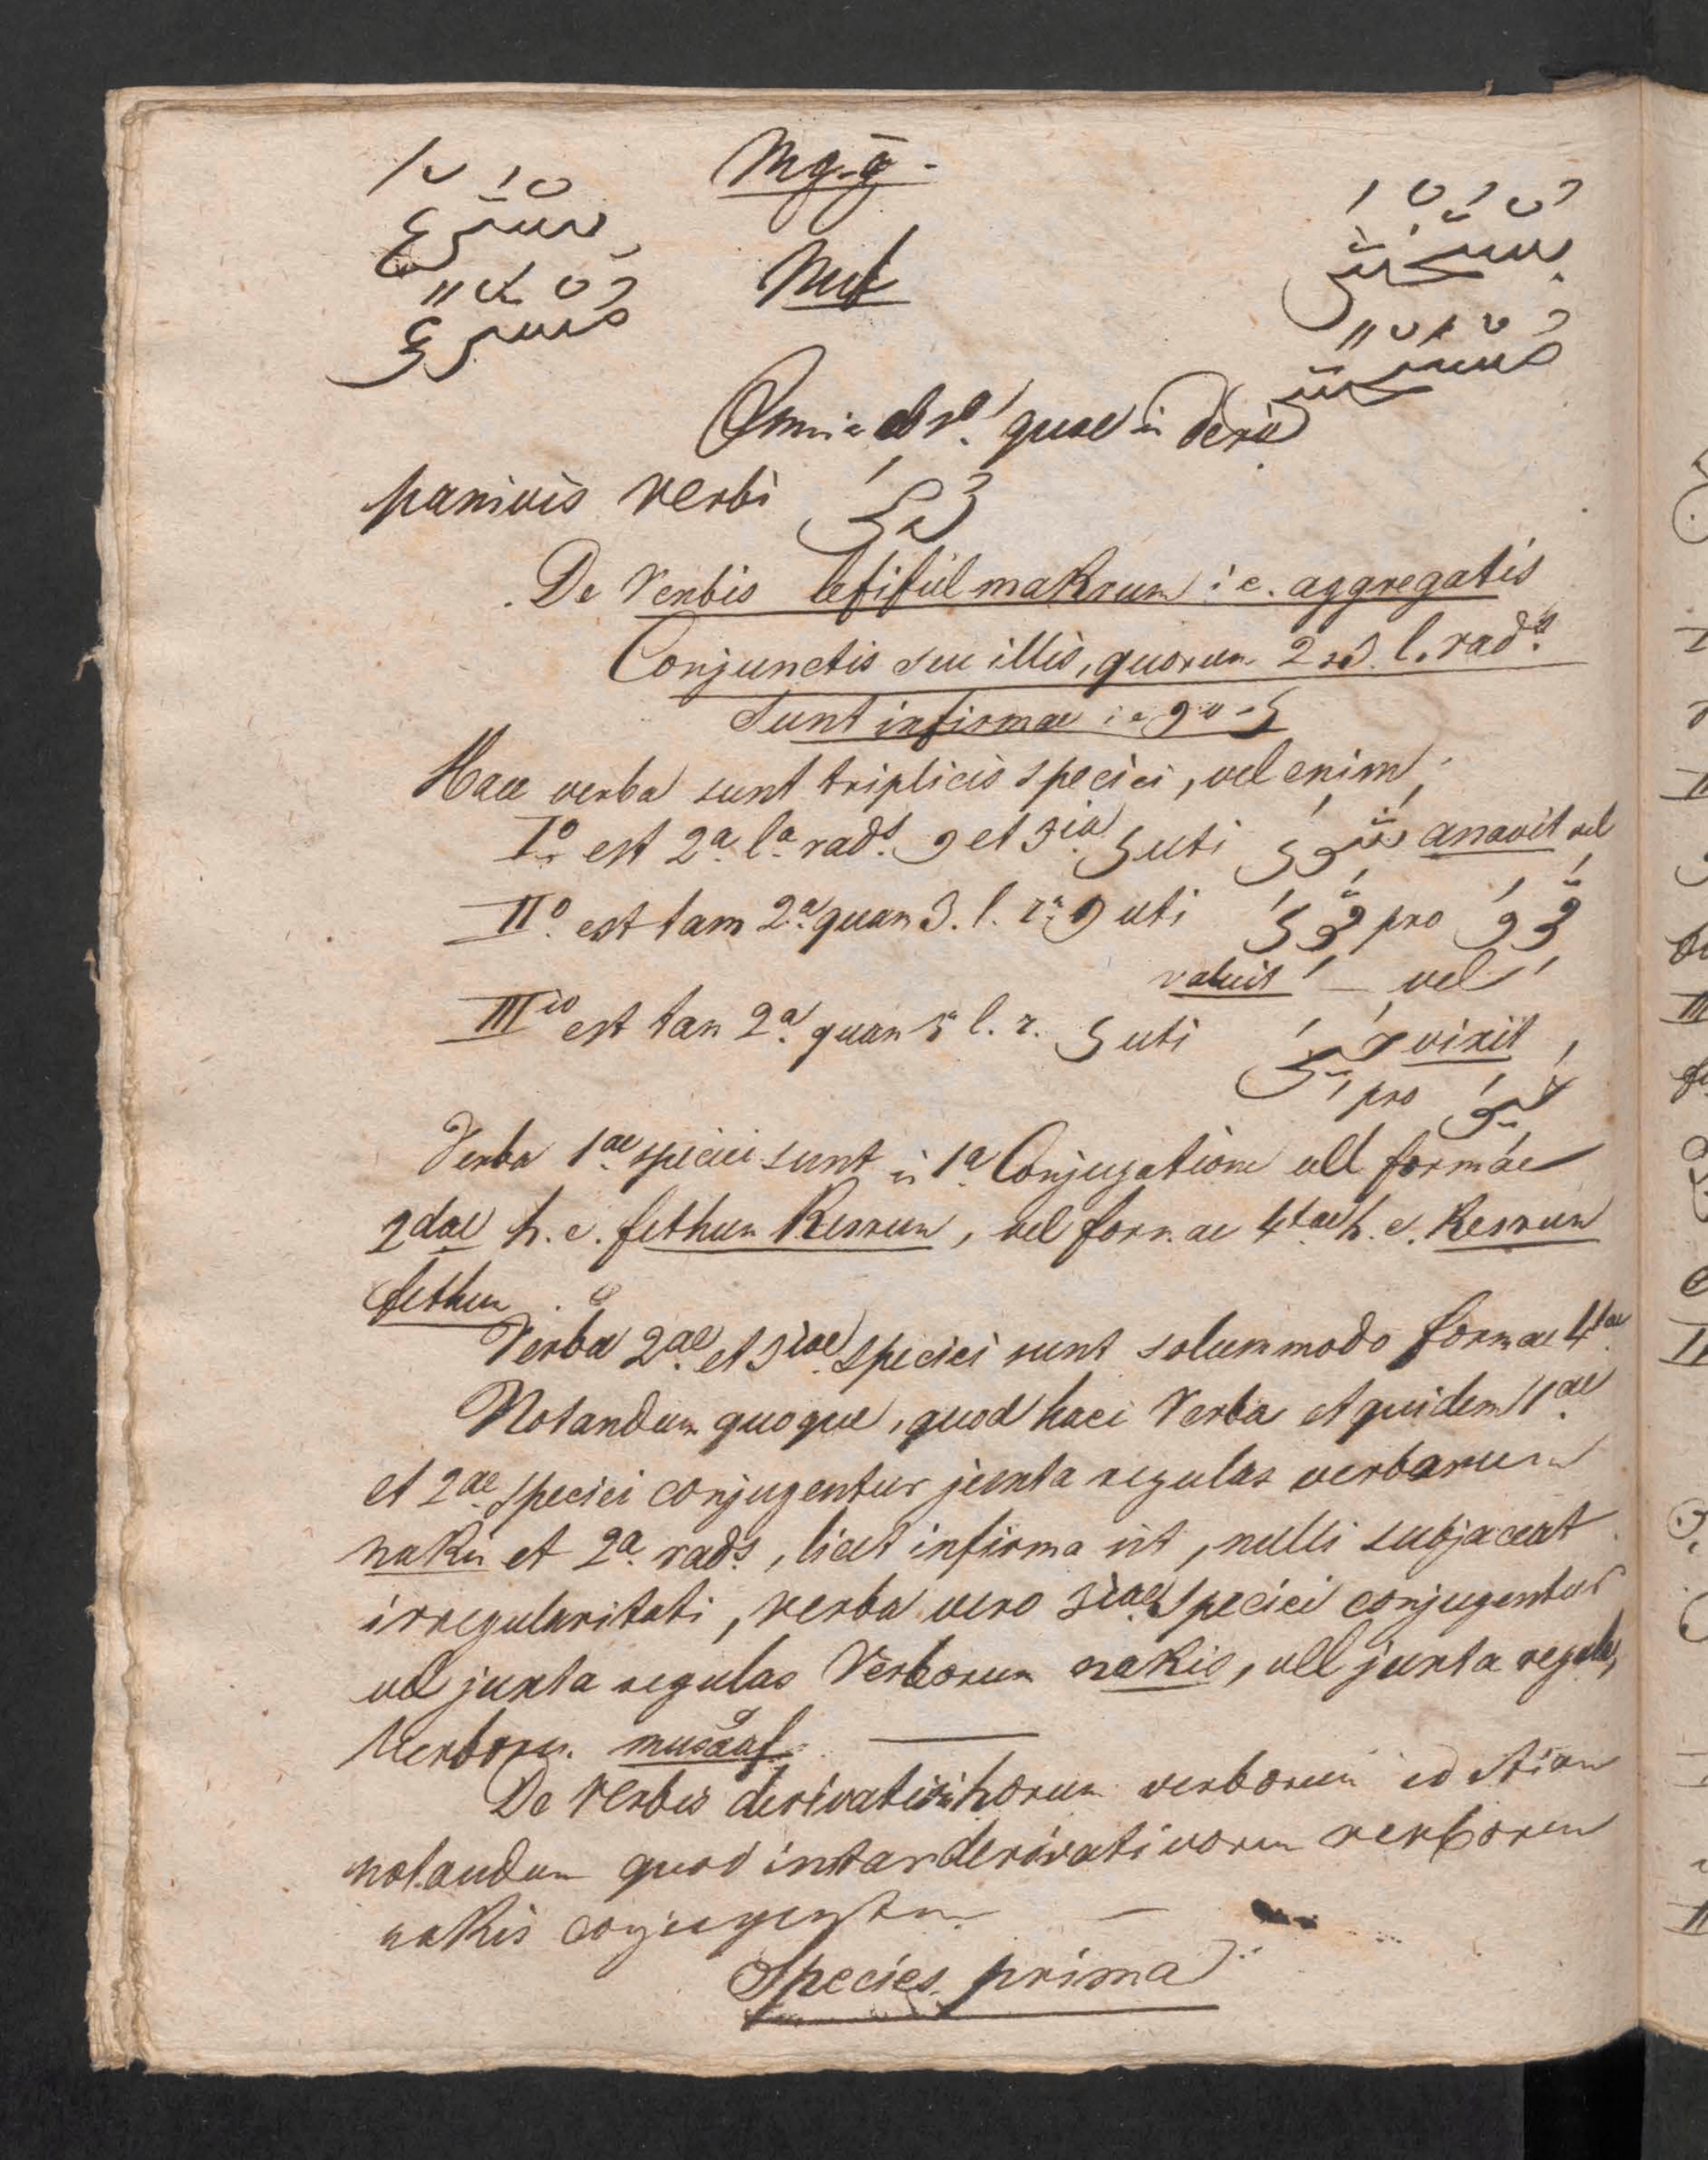 Mg.g.
Mef
Omnia
quae in
verbi
De Verbis lefiful makrun i e. aggregatis
Conjunctis seu illis, quorum 2 3 l. rads
Sunt infirmae i e و v ى
Haec verba sunt triplicis speciei, vel enim;
Iº est 2a. la. rads. و et 3ia ى uti شَوَىَ assavit vel
IIº. est tam 2a. quam 3. l. r. و uti قَوَىَ pro قَوَوَ
valuit — vel
IIIio est tam 2a. quam l. r. ى uti حَيَىَ vixit
pro حَيَوَ
Verba 1ae. speciei sunt in 1a Conjugatione vel formae
2dae h. e. fethun Kesrun, vel formae 4tae h. e. Kesrun
fethun
Verba 2ae. et 3iae. speciei sunt solummodo formae 4tae
Notandum quoque, quod haec Verba et quidem 1ae
et 2ae. speciei conjugentur juxta regulas verborum
nakis et 2a. rads, licet infirma sit, nulli subjaceat
irregularitati, verba vero 3iae. speciei conjugentur
vel juxta regulas Verborum nakis, vel juxta regulas
Verborum musaaf. —
De Verbis derivativis horum verborum id etiam
notandum quod instar derivativorum verborum
nakis conjugentur. —
Species prima